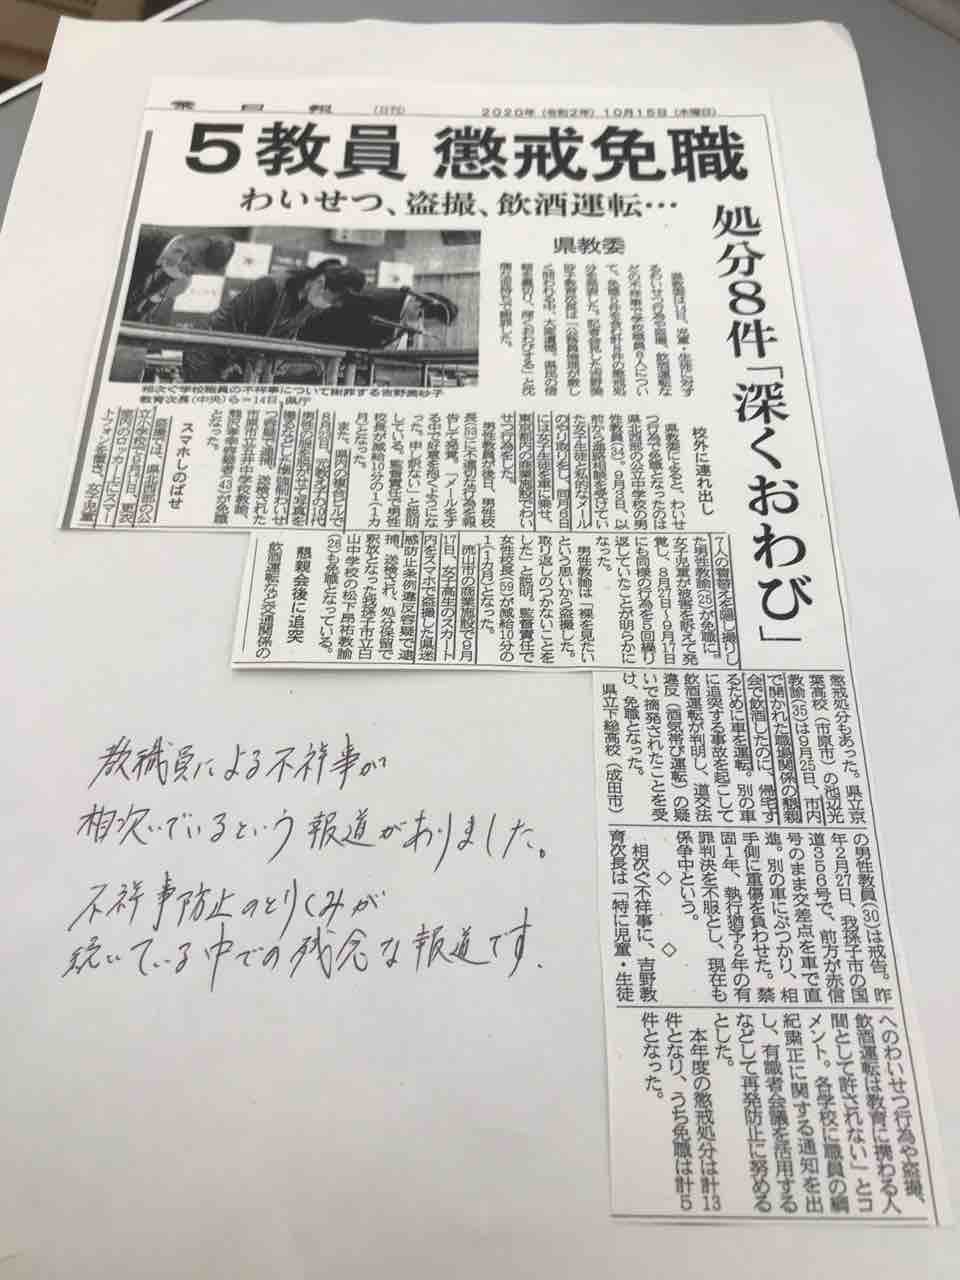 業日報
(日刊)
2020年(令和2年)10月15日(木曜日)
5教員 懲戒免職
わいせつ、盗撮、飲酒運転…
処分8件「深くおわび」
県教委
県教委は14日、児童・生徒に対す
るわいせつ行為や盗撮、飲酒運転な
どの不祥事で学校職員8人につい
て、免職5件を含む計8件の懲戒処
分を発表した。記者会見した吉野美
砂子教育次長は「公務員倫理が厳し
く問われる中、大変遺憾。県民の信
頼を裏切り、深くおわびする」と沈
痛な面持ちで謝罪した。
相次ぐ学校職員の不祥事について謝罪する吉野美砂子
教育次長(中央)ら=14日、県庁
校外に連れ出し
県教委によると、わいせ
つ行為で免職となったのは
県北西部の公立中学校の男
性教員(34)。9月3日、以
前から進路相談を受けてい
た女子生徒と私的なメール
のやり取りをし、同月6日
には女子生徒を車に乗せ、
東京都内の商業施設でわい
せつ行為をした。
男性教諭が後日、男性校
長(53)に不適切な行為を報
告して発覚。「メールをす
る中で好意を抱くようにな
った。申し訳ない」と説明
している。監督責任で男性
校長が減給10分の1(1カ
月)となった。
また、県内の複合ビルで
8月8日、元教え子の10代
男性の体を触らせて写真を
撮るなどした準強制わいせ
つ容疑で逮捕、送検された
市原市立五井中学校教諭、
容疑者(43)が免職
となった。
スマホしのばせ
盗撮では、県北西部の公
立小学校で9月17日、更衣
室内のロッカー上にスマー
トフォンを置き、女子児童
7人の着替えを隠し撮りし
た男性教諭(25)が免職に。
女子児童が被害を訴えて発
覚し、8月27日〜9月17日
にも同様の行為を5回繰り
返していたことが明らかに
なった。
男性教諭は「裸を見たい
という思いから盗撮した。
取り返しのつかないことを
した」と説明。監督責任で
女性校長(59)が減給10分の
1(1カ月)となった。
流山市の商業施設で9月
17日、女子高生のスカート
内をスマホで盗撮した県迷
惑防止条例違反容疑で逮
捕、送検され、処分保留で
釈放となった我孫子市立白
山中学校の松下昂祐教諭
(26)も免職となっている。
懇親会後に追突
飲酒運転など交通関係の
懲戒処分もあった。県立京
葉高校(市原市)の池辺光
教諭(35)は9月25日、市内
で開かれた職場関係の懇親
会で飲酒したのに、帰宅す
るために車を運転。別の車
に追突する事故を起こして
飲酒運転が判明し、道交法
違反(酒気帯び運転)の疑
いで摘発されたことを受
け、免職となった。
県立下総高校(成田市)
の男性教員(30)は戒告。昨
年2月27日、我孫子市の国
道356号で、前方が赤信
号のまま交差点を車で直
進。別の車にぶつかり、相
手側に重傷を負わせた。禁
固1年、執行猶予2年の有
罪判決を不服とし、現在も
係争中という。
◇ ◇
相次ぐ不祥事に、吉野教
育次長は「特に児童・生徒
へのわいせつ行為や盗撮、
飲酒運転は教育に携わる人
間として許されない」とコ
メント。各学校に職員の綱
紀粛正に関する通知を出
し、有識者会議を活用する
などして再発防止に努める
とした。
本年度の懲戒処分は計13
件となり、うち免職は計5
件となった。
教職員による不祥事が
相次いでいるという報道がありました。
不祥事防止のとりくみが
続いている中での残念な報道です.